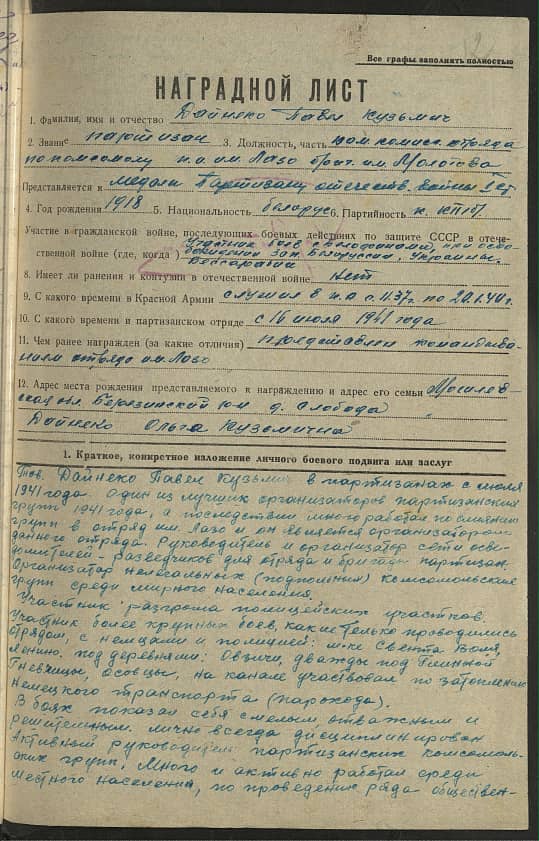 Все графы заполнять полностью
НАГРАДНОЙ ЛИСТ
1. Фамилия, имя и отчество Дайнеко Павел Кузьмич
2. Звание партизан 3. Должность, часть пом. комисс. отряда
по комсомолу п.о. им. Лазо бриг. им. Молотова
Представляется к медали Партизану отечеств. войны I ст
4. Год рождения 1918 5. Национальность белорус 6. Партийность к. КП/б/
Участие в гражданской войне, последующих боевых действиях по защите СССР в отече-
ственной войне (где, когда) Участник боев с белофинами, при осво-
бождении зап. Белоруссии, Украины,
Бессарабии
8. Имеет ли ранения и контузии в отечественной войне нет
9. С какого времени в Красной Армии служил в к.а с 11.37г. по 20.1.40г.
10. С какого времени в партизанском отряде с 16 июля 1941 года
11. Чем ранее награжден (за какие отличия) представлен командова-
нием отряда им. Лазо
12. Адрес места рождения представляемого к награждению и адрес его семьи Могилев-
ская обл. Березинский р-н д. Слобода
Дайнеко Ольга Кузьмична
1. Краткое, конкретное изложение личного боевого подвига или заслуг
Тов. Дайнеко Павел Кузьмич в партизанах с июля
1941 года. Один из лучших организаторов партизанских
групп 1941 года, а последствии много работал по слиянию
групп в отряд им. Лазо и он является организатором
данного отряда. Руководитель и организатор сети осве-
домителей - разведчиков для отряда и бригады партизан.
Организатор нелегальных (подпольных) комсомольских
групп среди мирного населения.
Участник разгрома полицейских участков.
Участник более крупных боев, какие только проводились
отрядом, с немцами и полицией: м-ке Свента Воля,
Ленино. под деревнями: Овзичи, дважды под Глинной
Гневчицы, Осовцы, на канале участвовал по затоплению
немецкого транспорта (парохода).
В боях показал себя смелым, отважным и
решительным. лично всегда дисциплинирован
Активный руководитель партизанских комсомоль-
ских групп. Много и активно работал среди
местного населения, по проведению ряда обществен-